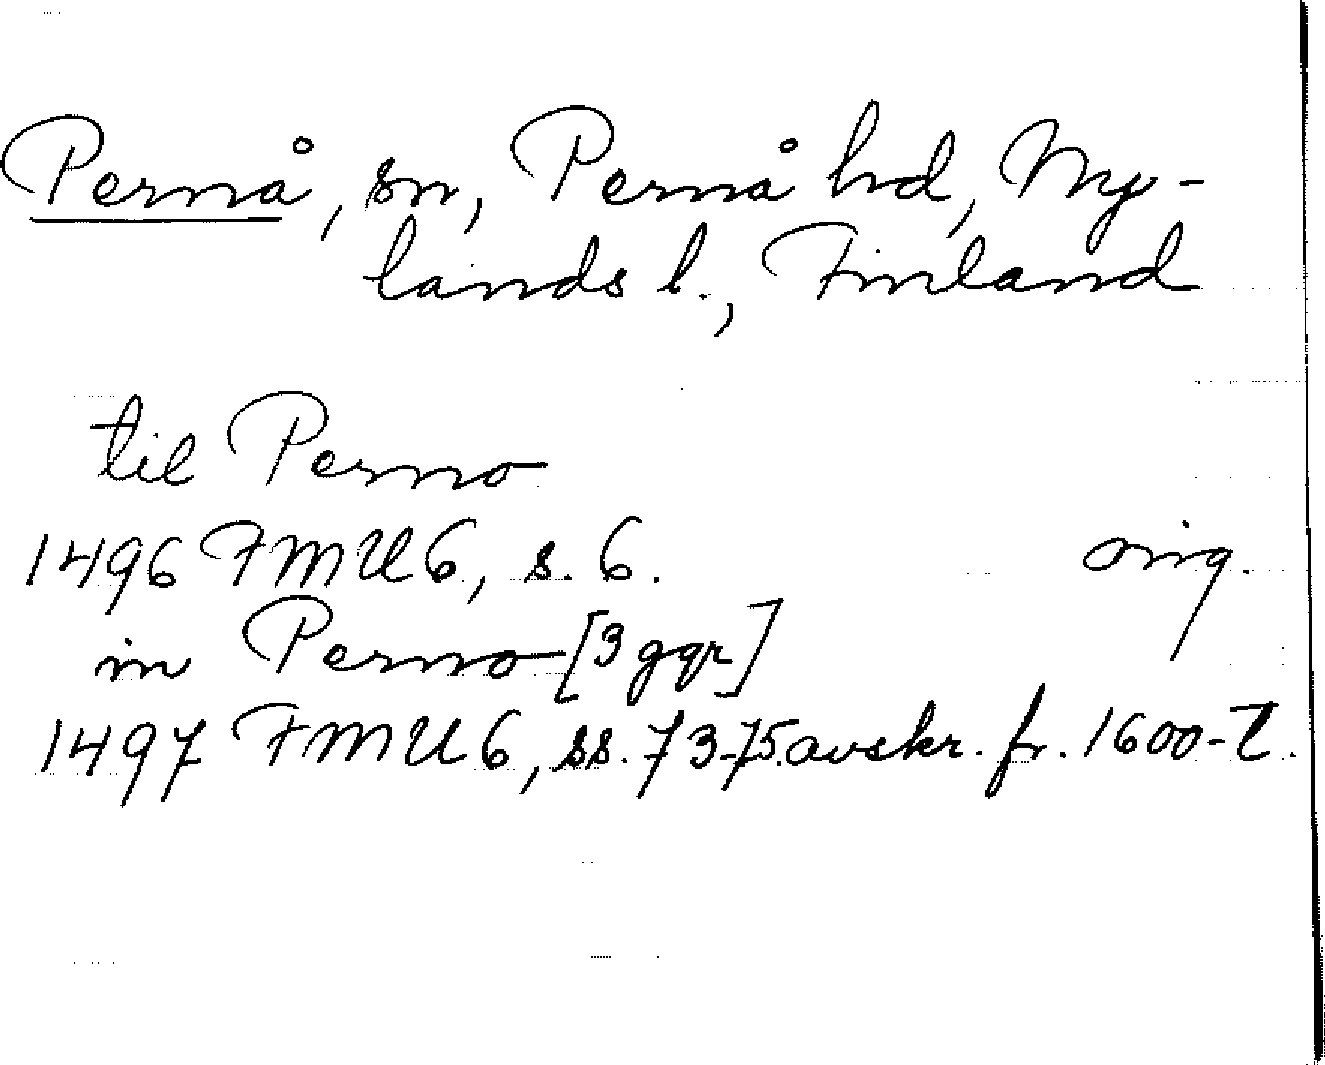 Pernå, sn, Pernå hd, Ny-
lands l., Finland
til Perno
1496 FMU 6, s. 6. orig.
in Perno [3 ggr]
1497 FMU 6, ss. 73-75 avskr. fr. 1600-t.